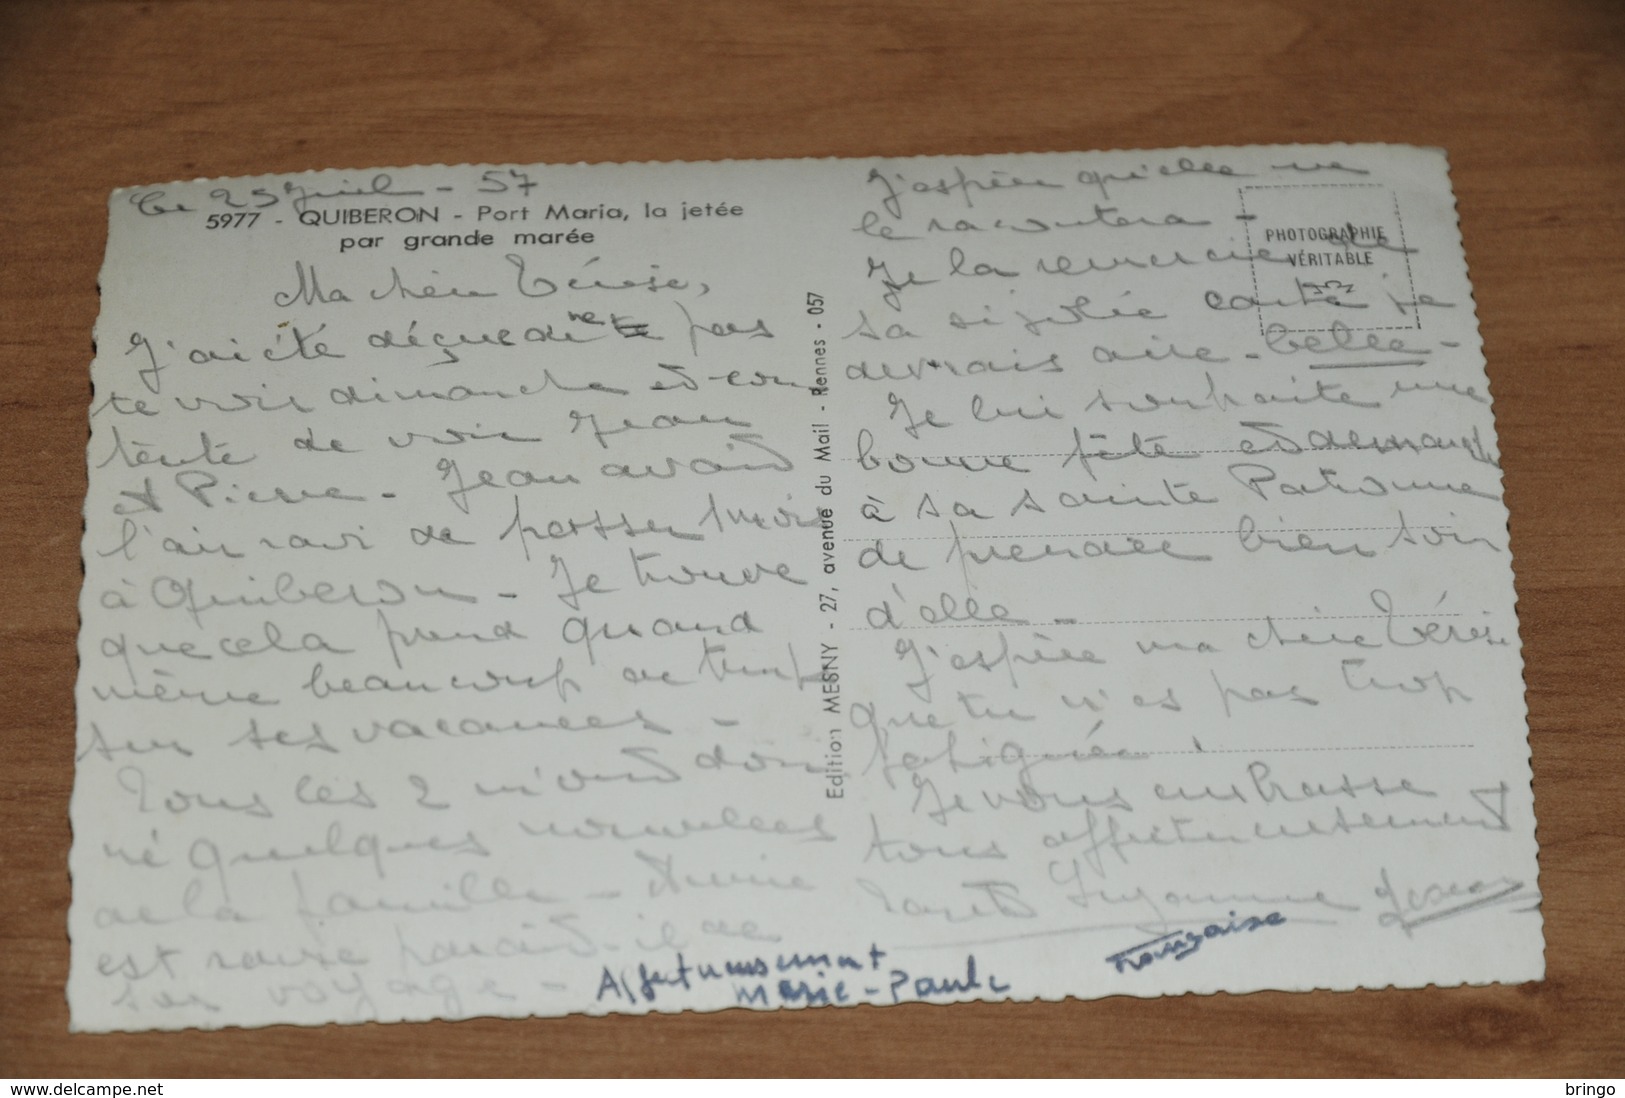 Le 25 Juil - 57
5977 - QUIBERON - Port Maria, la jetée
par grande marée
Ma chère Térèse,
J'ai été déçue de ne pas
te voir dimanche et con
tente de voir Jean
et Pierre - Jean avait
l'air ravi de passer 1 mois
à Quiberon - Je trouve
que cela prend quand
même beaucoup de temps
sur ses vacances -
Tous les 2 m'ont don
né quelques nouvelles
de la famille - Annie
est ravie parait-il de
son voyage -
Affectueusement
Marie-Paule
Edition MESNY - 27, avenue du Mail - Rennes - 057
PHOTOGRAPHIE
VÉRITABLE
J'espère qu'elle me
le racontera -
Je la remercie de
sa si jolie carte je
devrais dire - belle -
Je lui souhaite une
bonne fête et demande
à sa sainte Patronne
de prendre bien soin
d'elle -
J'espère ma chère Térèse
que tu n'es pas trop
fatiguée.
Je vous embrasse
tous affectueusement
Suzanne
Françoise
delcampe.net
bringo